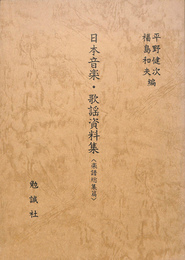 平野健次
福島和夫 編
日本音楽・歌謡資料集
〈楽譜総集篇〉
勉誠社